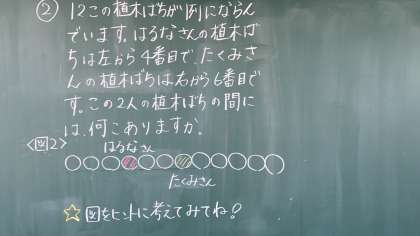 ② 12この植木ばちが例にならん
でいます。はるなさんの植木ば
ちは左から4番目で、たくみさ
んの植木ばちは右から6番目で
す。この2人の植木ばちの間に
は、何こありますか。
<図2>
はるなさん
たくみさん
☆図をヒントに考えてみてね？